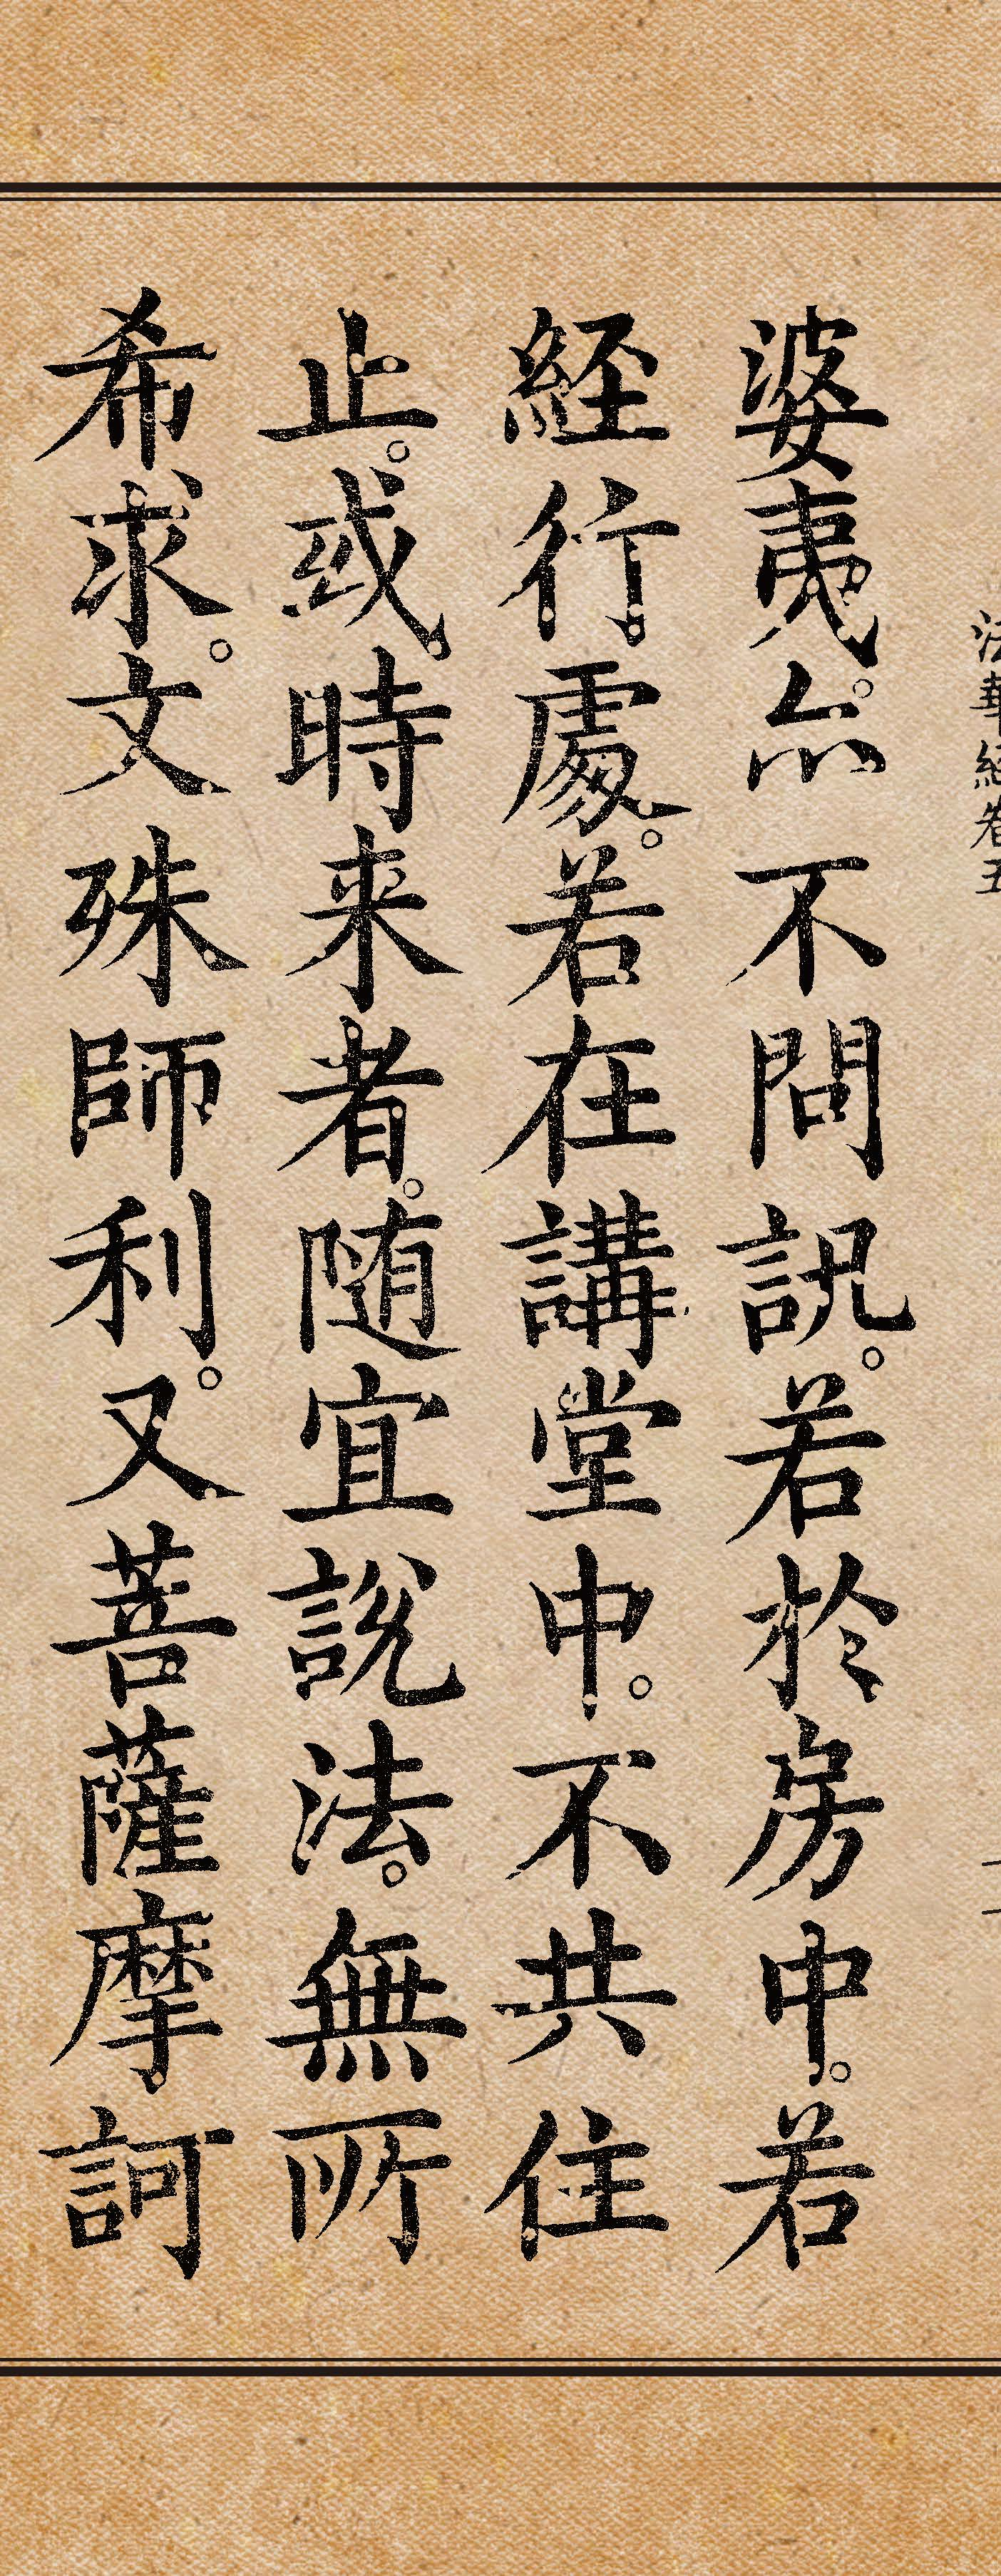 法華經卷五
婆夷。亦不問訊。若於房中。若
經行處。若在講堂中。不共住
止。或時来者。随宜說法。無所
希求。文殊師利。又菩薩摩訶